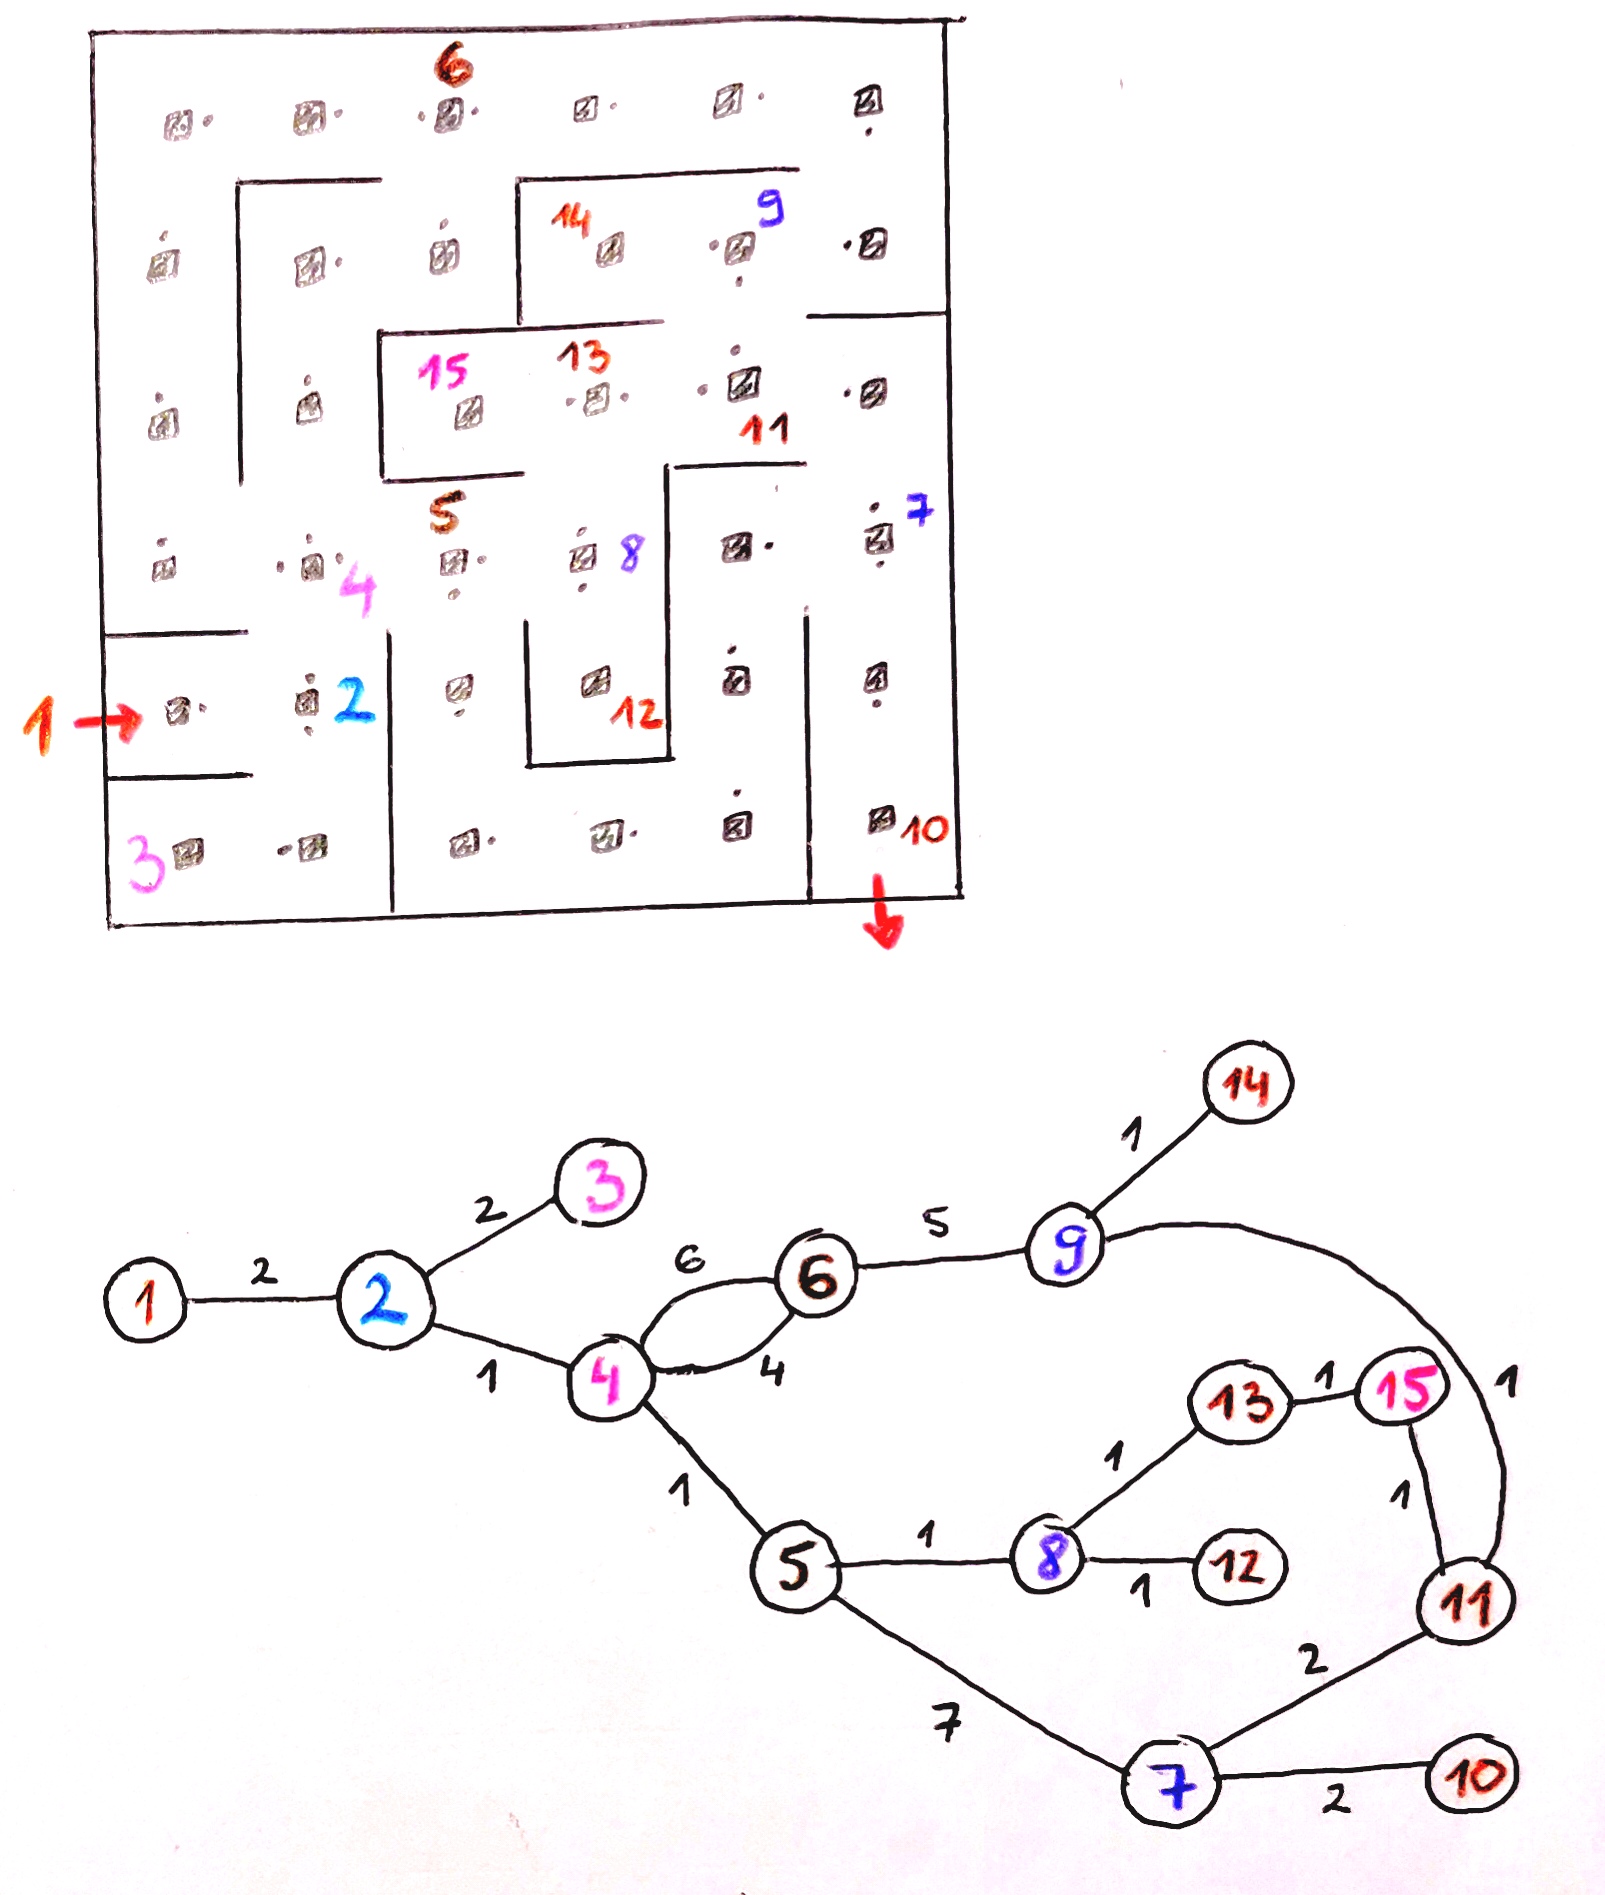 6
14 9
15 13
11
5 7
4 8
1 2 12
3 10
14
1
3
2 5 9
6
2 6
1 2
1 4 4 13 1 15 1
1 1
1
5 1 8 12
1 11
2
7
7 2 10